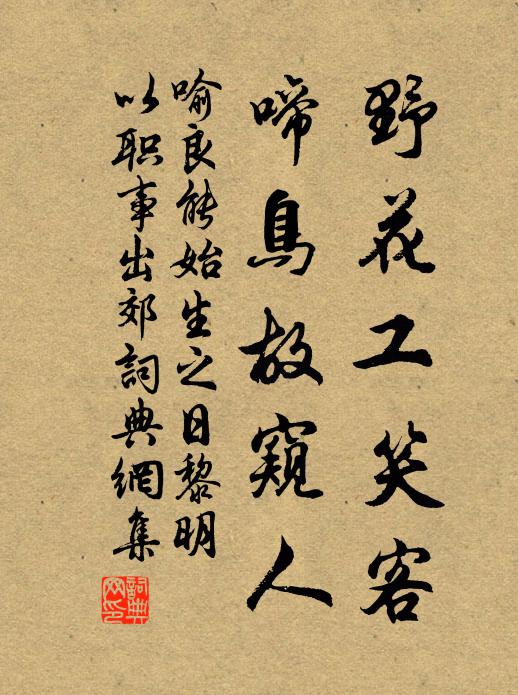 野花工笑客
啼鳥故窺人
喻良能始生之日黎明
以职事出郊詞典網集
詞典网印